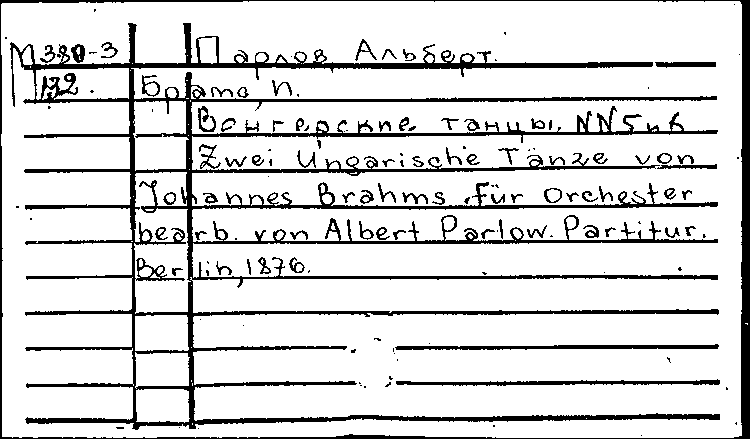 М 380-3 Парлов, Альберт.
132. Брамс, И.
Венгерские танцы. NN 5 и 6
Zwei Ungarische Tänze von
Johannes Brahms für Orchester
bearb. von Albert Parlow. Partitur.
Berlin, 1876.